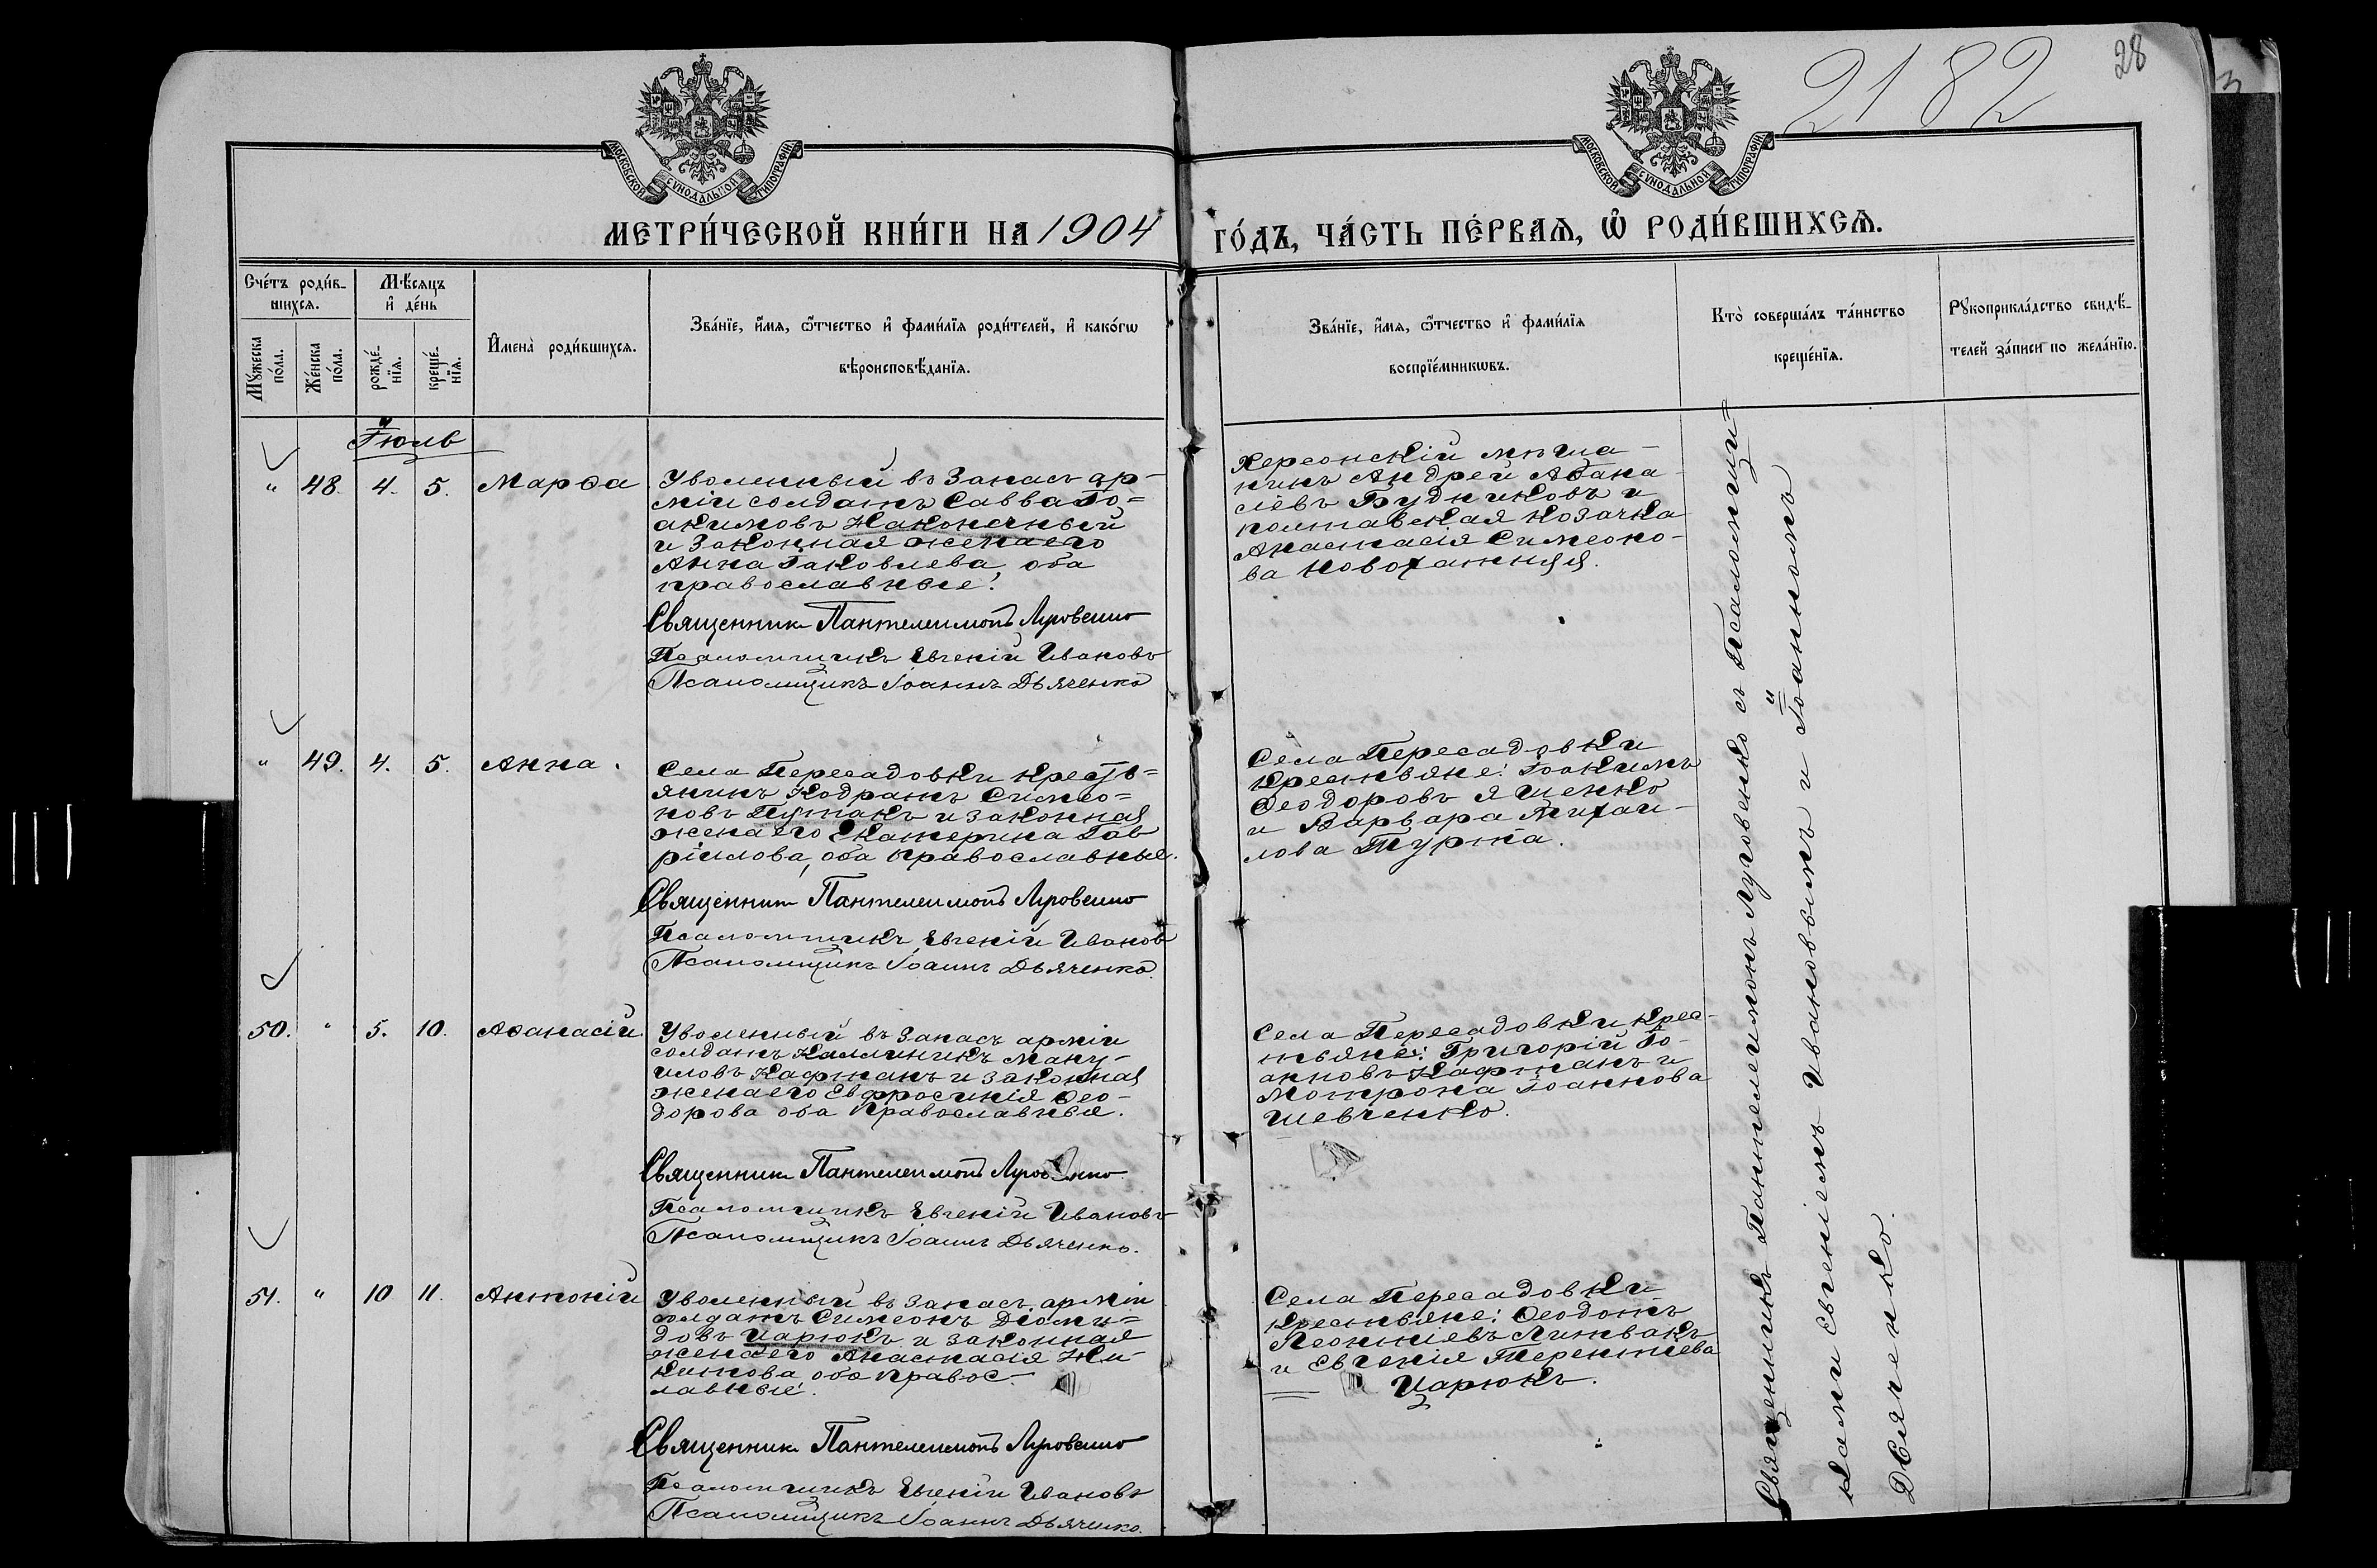 2182
28
МОСКОВСКОЙ СУНОДАЛЬНОЙ ТИПОГРАФІИ
МОСКОВСКОЙ СУНОДАЛЬНОЙ ТИПОГРАФІИ
МЕТРИ́ЧЕСКОЙ КНИ́ГИ НА 1904
ГО́ДЪ, ЧА́СТЬ ПЕ́РВАѦ, Ѡ҆ РОДИ́ВШИХСѦ.
Сче́тъ роди́в-
шихсѧ.
Мꙋ́жеска
по́ла.
Же́нска
по́ла.
Мѣ́сѧцъ
и҆ де́нь
рожде́-
нїѧ.
креще́-
нїѧ.
И҆мена̀ роди́вшихсѧ.
Зва́нїе, и҆́мѧ, ѻ҆́тчество и҆ фами́лїѧ роди́телей, и҆ како́гѡ
вѣроисповѣ́данїѧ.
Зва́нїе, и҆́мѧ, ѻ҆́тчество и҆ фами́лїѧ
воспрїе́мникѡвъ.
Кто̀ соверша́лъ та́инство
креще́нїѧ.
Рꙋкоприкла́дство свидѣ́-
телей за́писи по жела́нїю.
Іюль
" 48. 4. 5. Марѳа
Уволенный въ запасъ ар-
міи солдатъ Савва Іо=
акимовъ Наконечный
и законная жена его
Анна Іаковлева, оба
православные.
Священникъ Пантелеимонъ Луговенко
Псаломщикъ Евгеній Ивановъ
Псаломщикъ Іоаннъ Дьяченко
Херсонскій мѣща-
нинъ Андрей Аѳана-
сіевъ Будниковъ и
полтавская козачка
Анастасія Симеоно-
ва
" 49. 4. 5. Анна.
Села Пересадовки крестъ=
янинъ Кодратъ Симео=
новъ и законная
жена его Екатерина Гав
ріилова, оба православные.
Священникъ Пантелеимонъ Луговенко
Псаломщикъ Евгеній Ивановъ
Псаломщикъ Іоаннъ Дьяченко.
Села Пересадовки
крестьяне: Іоакимъ
Ѳеодоровъ Ященко
и Варвара Михаи-
лова Турта.
50. " 5. 10. Аѳанасій
Уволенный въ запасъ арміи
солдатъ Каллиникъ Ману-
иловъ Кафтанъ и законная
жена его Евфросинія Ѳео-
дорова оба православные.
Священникъ Пантелеимонъ Луговенко
Псаломщикъ Евгеній Ивановъ
Псаломщикъ Іоаннъ Дьяченко.
Села Пересадовки крес-
тьяне: Григорій Іо-
анновъ Кафтанъ и
Мотрона Іоаннова
Шевченко.
51. " 10 11. Антоній
Уволенный въ запасъ арміи
солдатъ Симеонъ Діоми-
довъ Царюкъ и законная
жена его Анастасія Ни-
китова оба правос-
лавные.
Священникъ Пантелеимонъ Луговенко
Псаломщикъ Евгеній Ивановъ
Псаломщикъ Іоаннъ Дьяченко.
Села Пересадовки
крестьяне: Ѳеодотъ
Леонтіевъ Литвакъ
и Евгенія Терентіева
Царюкъ.
Священникъ Пантелеимонъ Луговенко съ Псаломщи=
ками Евгеніемъ Ивановымъ и Іоанномъ
Дьяченко.